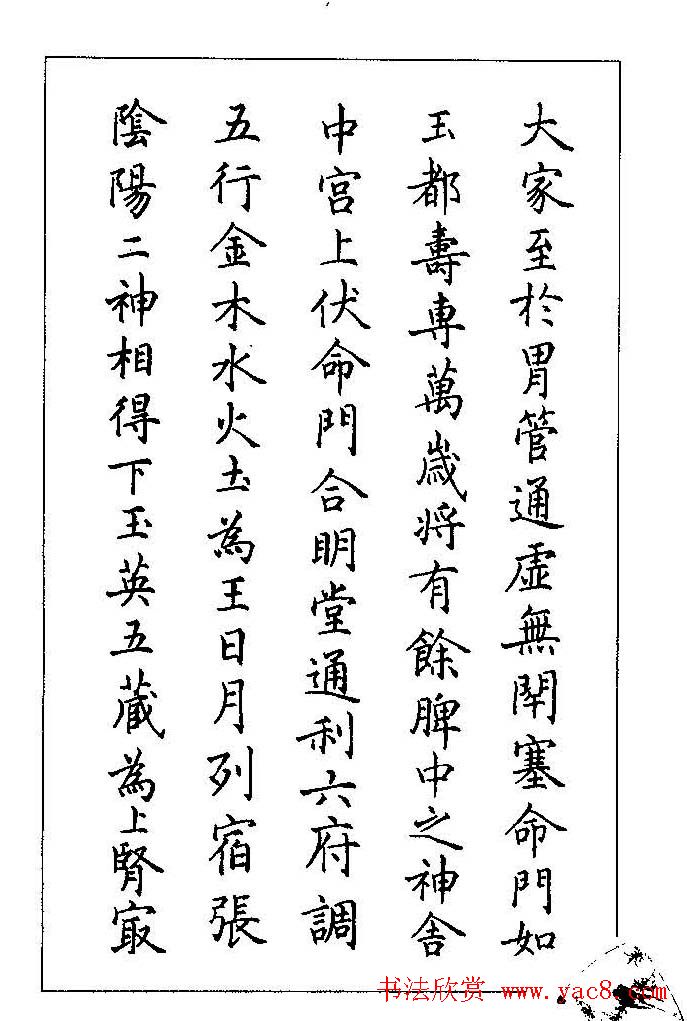 大家至於胃管通虛無閉塞命門如
玉都壽專萬歲將有餘脾中之神舍
中宮上伏命門合明堂通利六府調
五行金木水火土為王日月列宿張
陰陽二神相得下玉英五藏為上腎寂
书法欣赏 www.yac8.com